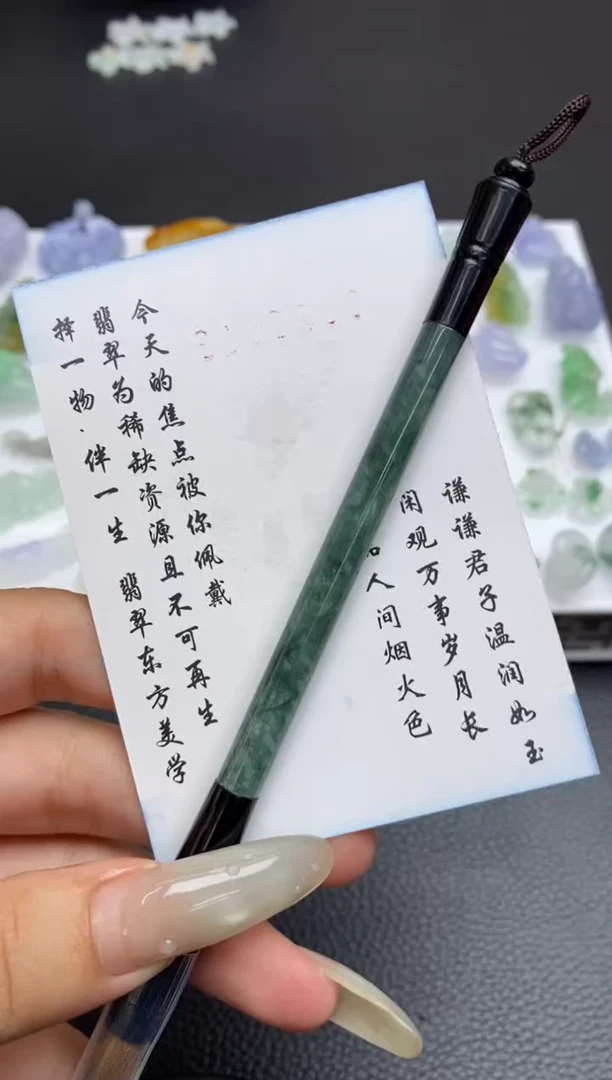 谦谦君子温润如玉
闲观万事岁月长
人间烟火色
今天的焦点被你佩戴
翡翠为稀缺资源且不可再生
择一物·伴一生 翡翠东方美学